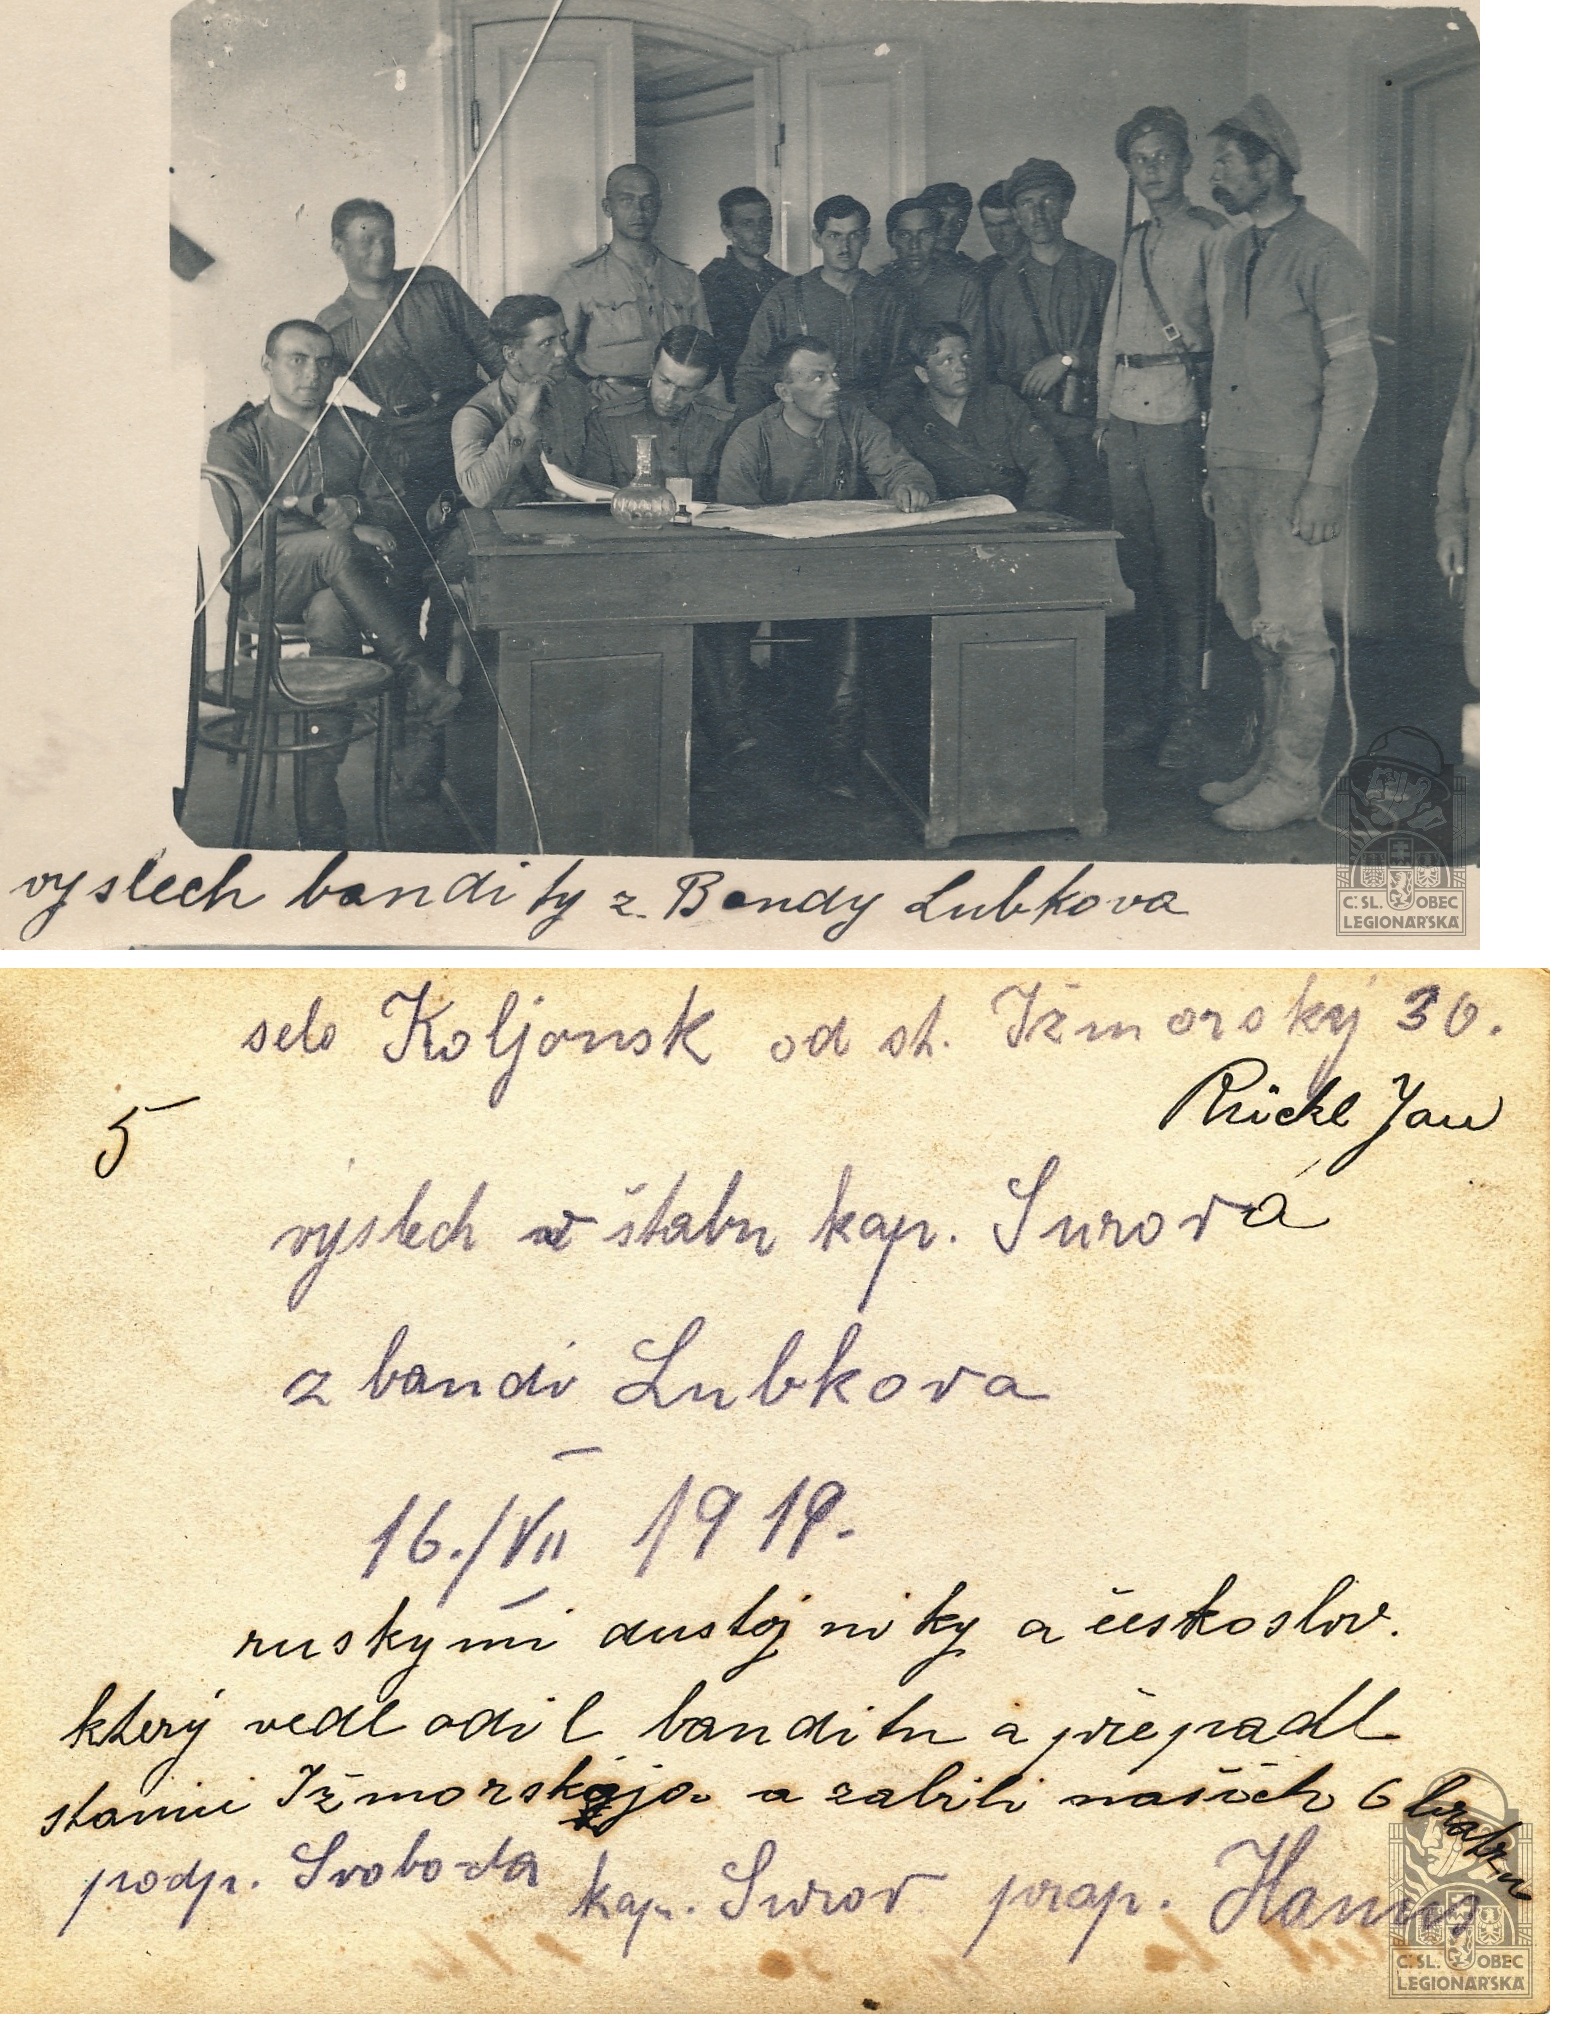 vyslech bandity z. Bandy Lubkova
Č: SL. OBEC
LEGIONÁRSKÁ
selo Koljonsk od st. Ižmorský 30.
5
Rückl Jan
výslech v štabu kap. Surová
z bandi Lubkova
16./VII 1919.
ruskými dustojniky a českoslov.
který vedl odil banditu a přepadl
stanici Ižmorskaja a zabili našich 6 bratru
podp. Svoboda kap. Surov prap. Hanus
Č: SL. OBEC
LEGIONÁRSKÁ